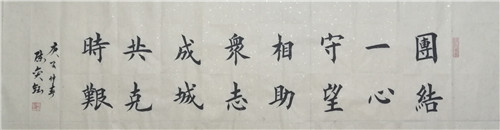 團結
一心
守望
相助
衆志
成城
共克
時艱
庚子仲春